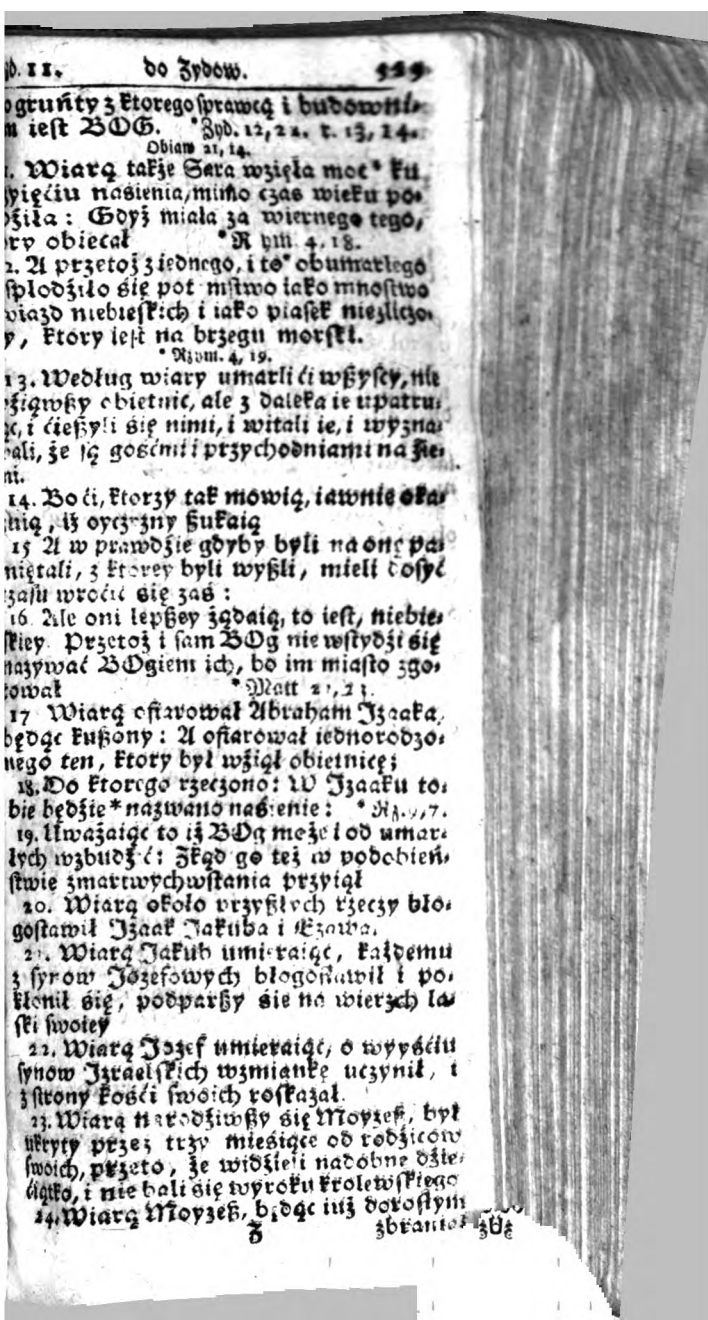 yd. 11. do Zydow. 529
o gruńty z ktorego sprawcą i budowni-
m iest BOG. *Zyd. 12, 22. r. 13, 14.
Obiaw 21, 14.
1. Wiarą także Sara wzięła moc* ku
yięćiu naśienia, mimo czas wieku po-
dźiła: Gdyż miała za wiernego tego,
ory obiecał *Rzym. 4, 18.
2. A przetoż z iednego, i to* obumarłego
spłodźiło się pot mstwo iako mnostwo
wiazd niebieskich i iako piasek niezliczo-
y, ktory iest na brzegu morski.
* Rzym. 4, 19.
13. Według wiary umarli ći wßyscy, nie
źiąwßy obietnic, ale z daleka ie upatru-
ąc, i ćießyli się nimi, i witali ie, i wyzna-
ali, że są gośćmi i przychodniami na źie-
mi.
14. Bo ći, ktorzy tak mowią, iawnie oka-
uią, iż oyczyzny ßukaią
15 A w prawdźie gdyby byli na onę pa-
miętali, z ktorey byli wyßli, mieli dosyć
czasu wroćić się zaś:
16. Ale oni lepßey żądaią, to iest, niebie-
skiey. Przetoż i sam BOg nie wstydźi się
nazywać BOgiem ich, bo im miasto zgo-
tował * Matt 22, 23.
17 Wiarą ofiarował Abraham Izaaka,
będąc kußony: A ofiarował iednorodzo-
nego ten, ktory był wźiął obietnicę;
18. Do ktorego rzeczono: W Izaaku to-
bie będźie* nazwano naśienie: * Rz. 9, 7.
19. Uważaiąc to iż BOg może i od umar-
łych wzbudźić: Zkąd go też w podobień-
stwie zmartwychwstania przyiął
20. Wiarą około przyßłych rzeczy bło-
gosławił Izaak Jakuba i Ezawa.
21. Wiarą Jakub umieraiąc, każdemu
z synow Jozefowych błogosławił i po-
kłonił się, podparßy się na wierzch la-
ski swoiey
22. Wiarą Jozef umieraiąc, o wyyśćiu
synow Izraelskich wzmiankę uczynił, i
z strony kośći swoich roskazał.
23. Wiarą narodźiwßy się Moyzeß, był
ukryty przez trzy mieśiące od rodźicow
swoich, przeto, że widźieli nadobne dźie-
ćiątko, i nie bali się wyroku krolewskiego
24. Wiarą Moyzeß, będąc iuż dorosłym
Z zbraniał